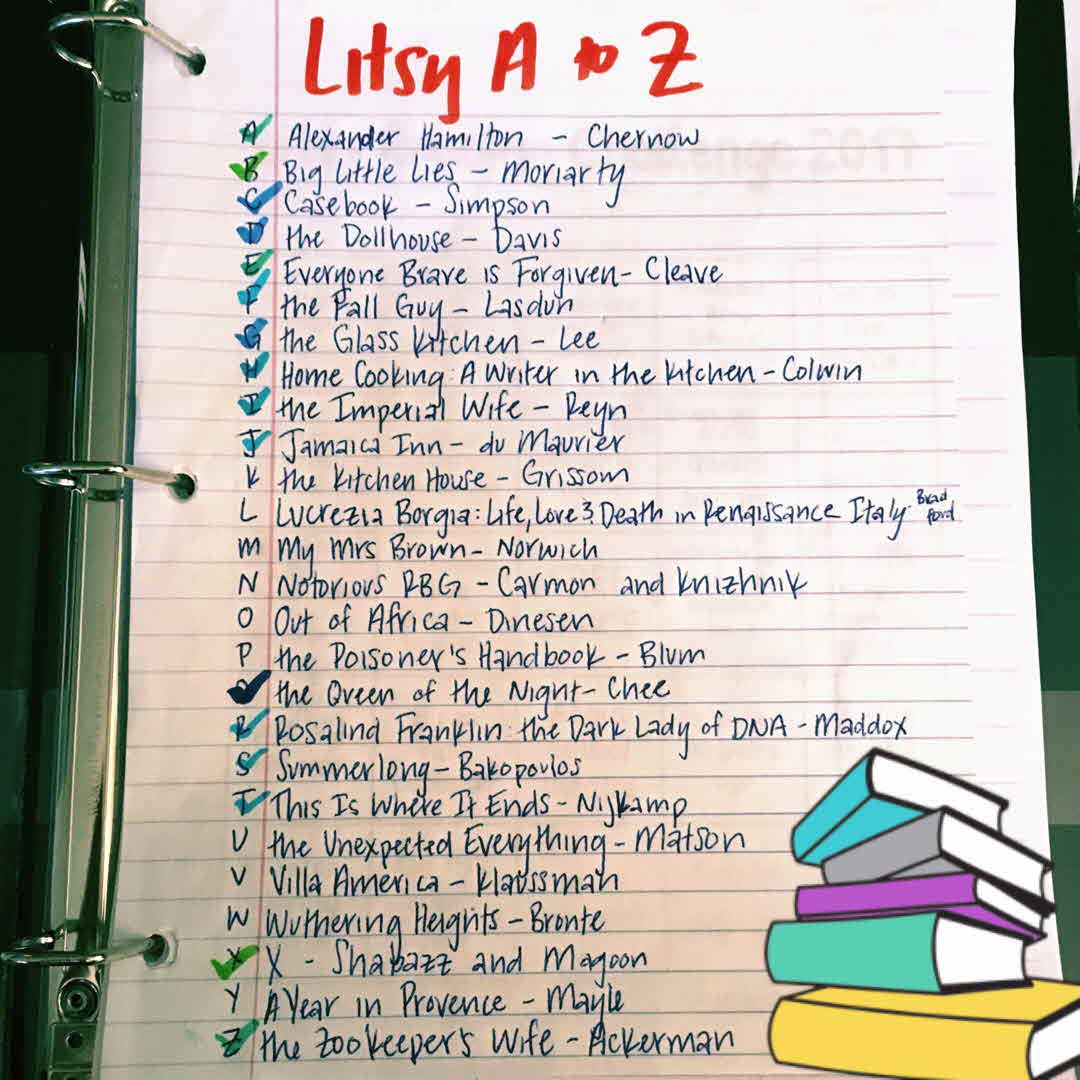 Litsy A to Z
A Alexander Hamilton - Chernow
B Big Little Lies - Moriarty
C Casebook - Simpson
D the Dollhouse - Davis
E Everyone Brave is Forgiven - Cleave
F the Fall Guy - Lasdun
G the Glass Kitchen - Lee
H Home Cooking: A Writer in the Kitchen - Colwin
I the Imperial Wife - Reyn
J Jamaica Inn - du Maurier
K the Kitchen House - Grissom
L Lucrezia Borgia: Life, Love & Death in Renaissance Italy - Bradford
M My Mrs Brown - Norwich
N Notorious RBG - Carmon and Knizhnik
O Out of Africa - Dinesen
P the Poisoner's Handbook - Blum
Q the Queen of the Night - Chee
R Rosalind Franklin: the Dark Lady of DNA - Maddox
S Summerlong - Bakopoulos
T This Is Where It Ends - Nijkamp
U the Unexpected Everything - Matson
V Villa America - Klaussman
W Wuthering Heights - Bronte
X X - Shabazz and Magoon
Y A Year in Provence - Mayle
Z the Zookeeper's Wife - Ackerman